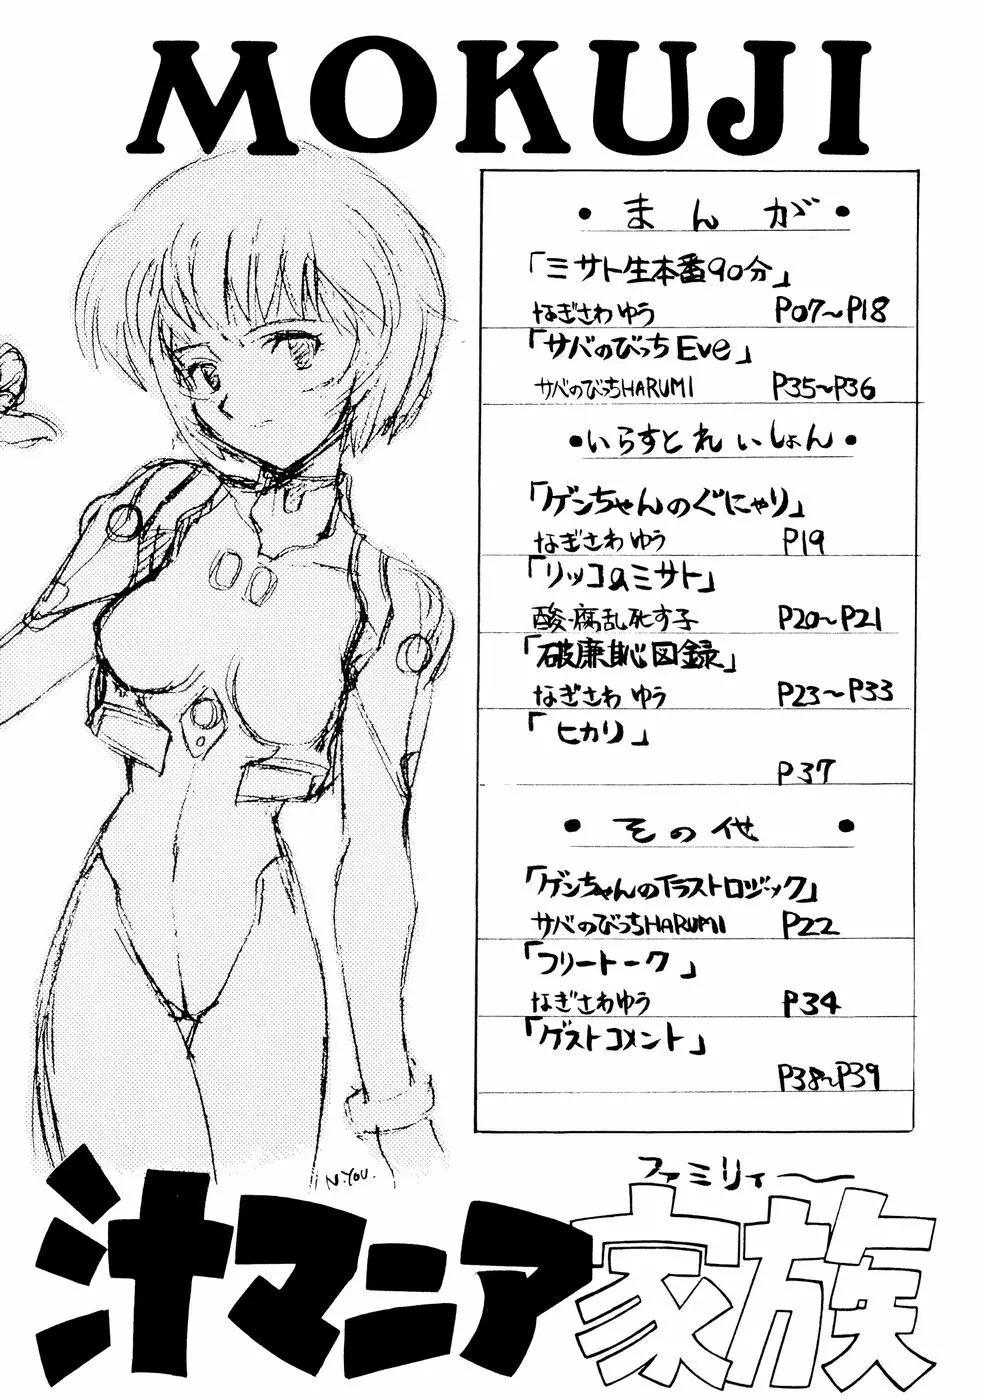 MOKUJI
・まんが・
「ミサト生本番90分」
なぎさわゆう P07～P18
「サバのびっちEve」
サバのびっちHARUMI P35～P36
・いらすとれいしょん・
「ゲンちゃんのぐにゃり」
なぎさわゆう P19
「リッコのミサト」
酸・腐乱死す子 P20～P21
「破廉恥図録」
なぎさわゆう P23～P33
「ヒカリ」
P37
・その他・
「ゲンちゃんのイラストロジック」
サバのびっちHARUMI P22
「フリートーク」
なぎさわゆう P34
「ゲストコメント」
P38～P39
N.YOU.
ファミリィ～
汁マニア家族